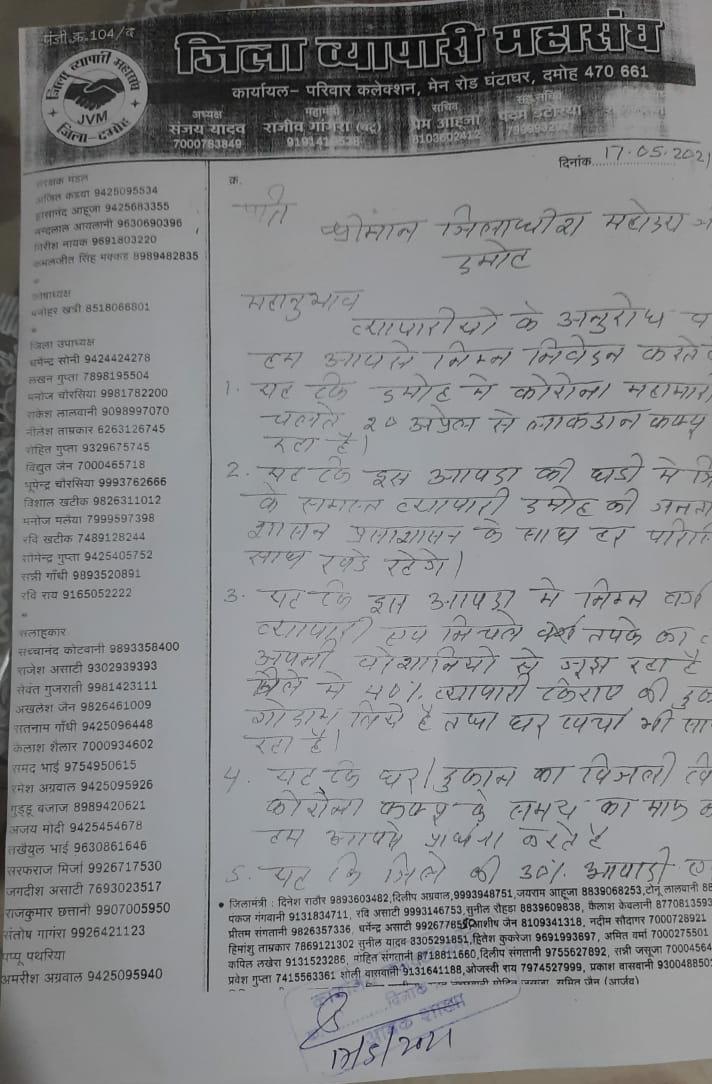 पंजी.क्र.104/द
जिला व्यापारी महासंघ
कार्यायल- परिवार कलेक्शन, मेन रोड घंटाघर, दमोह 470 661
जिला व्यापारी महासंघ
JVM
जिला-दमोह
अध्यक्ष
संजय यादव
7000783849
महामंत्री
राजीव गांगरा
सचिव
प्रेम आहूजा
8103602412
सह सचिव
दिनांक 17.05.2021
क्र.
संरक्षक मंडल
9425095534
आहूजा 9425683355
आयलानी 9630690396
गिरीश नायक 9691803220
कमलजीत सिंह मक्कड़ 8989482835
कोषाध्यक्ष
मनोहर खत्री 8518066801
जिला उपाध्यक्ष
धर्मेन्द्र सोनी 9424424278
लखन गुप्ता 7898195504
मनोज चौरसिया 9981782200
राकेश लालवानी 9098997070
नीलेश ताम्रकार 6263126745
रोहित गुप्ता 9329675745
विद्युत जैन 7000465718
भूपेन्द्र चौरसिया 9993762666
विशाल खटीक 9826311012
मनोज मलैया 7999597398
रवि खटीक 7489128244
सोमेन्द्र गुप्ता 9425405752
सन्नी गाँधी 9893520891
रवि राय 9165052222
सलाहकार
सच्चानंद कोटवानी 9893358400
राजेश असाटी 9302939393
सेवंत गुजराती 9981423111
अखलेश जैन 9826461009
सतनाम गाँधी 9425096448
कैलाश शैलार 7000934602
समद भाई 9754950615
रमेश अग्रवाल 9425095926
गुड्डू बजाज 8989420621
अजय मोदी 9425454678
तखैयुल भाई 9630861646
सरफराज मिर्जा 9926717530
जगदीश असाटी 7693023517
राजकुमार छत्तानी 9907005950
संतोष गांगरा 9926421123
पप्पू पथरिया
अमरीश अग्रवाल 9425095940
प्रति
श्रीमान जिलाधीश महोदय
दमोह
महानुभाव
व्यापारीयो के अनुरोध
हम आपसे निम्न निवेदन करते
1. यह कि दमोह मे कोरोना महामारी
चलते 20 अप्रेल से लाकडान कर्फ्यू
रहा है।
2. यह कि इस आपदा की घडी मे
के समस्त व्यापारी दमोह की जनता
शासन प्रसाशासन के साथ हर
साथ खडे रहेगे।
3. यह कि इस आपदा मे निम्न वर्ग
व्यापारी एव निचले तपके का
अपनी परेशानियो से जूझ रहा है
जिले मे 40% व्यापारी किराए की
गोदाम लिये है तथा घर खर्चा भी
रहा है।
4. यह कि घर/दुकान का बिजली
कोरोना कर्फ्यू के समय का माफ
हम आपसे प्रार्थना करते है
5. यह कि जिले की 30% आबादी
• जिलामंत्री : दिनेश राठौर 9893603482,दिलीप अग्रवाल,9993948751,जयराम आहूजा 8839068253,टोनू लालवानी 88
पंकज गंगवानी 9131834711, रवि असाटी 9993146753,सुनील रोहड़ा 8839609838, कैलाश केवलानी 8770813593
प्रीतम संगतानी 9826357336, धर्मेन्द्र असाटी जैन 8109341318, नदीम सौदागर 7000728921
हिमांशु ताम्रकार 7869121302 सुनील यादव 8305291851,हितेश कुकरेजा 9691993697, अमित वर्मा 7000275501
कपिल लखेरा 9131523286, मोहित संगतानी 8718811660,दिलीप संगतानी 9755627892, सन्नी जसूजा 70004564
प्रवेश गुप्ता 7415563361 शोली वासवानी 9131641188,ओजस्वी राय 7974527999, प्रकाश वासवानी 9300488501
दिनांक
शाखा
17/5/2021